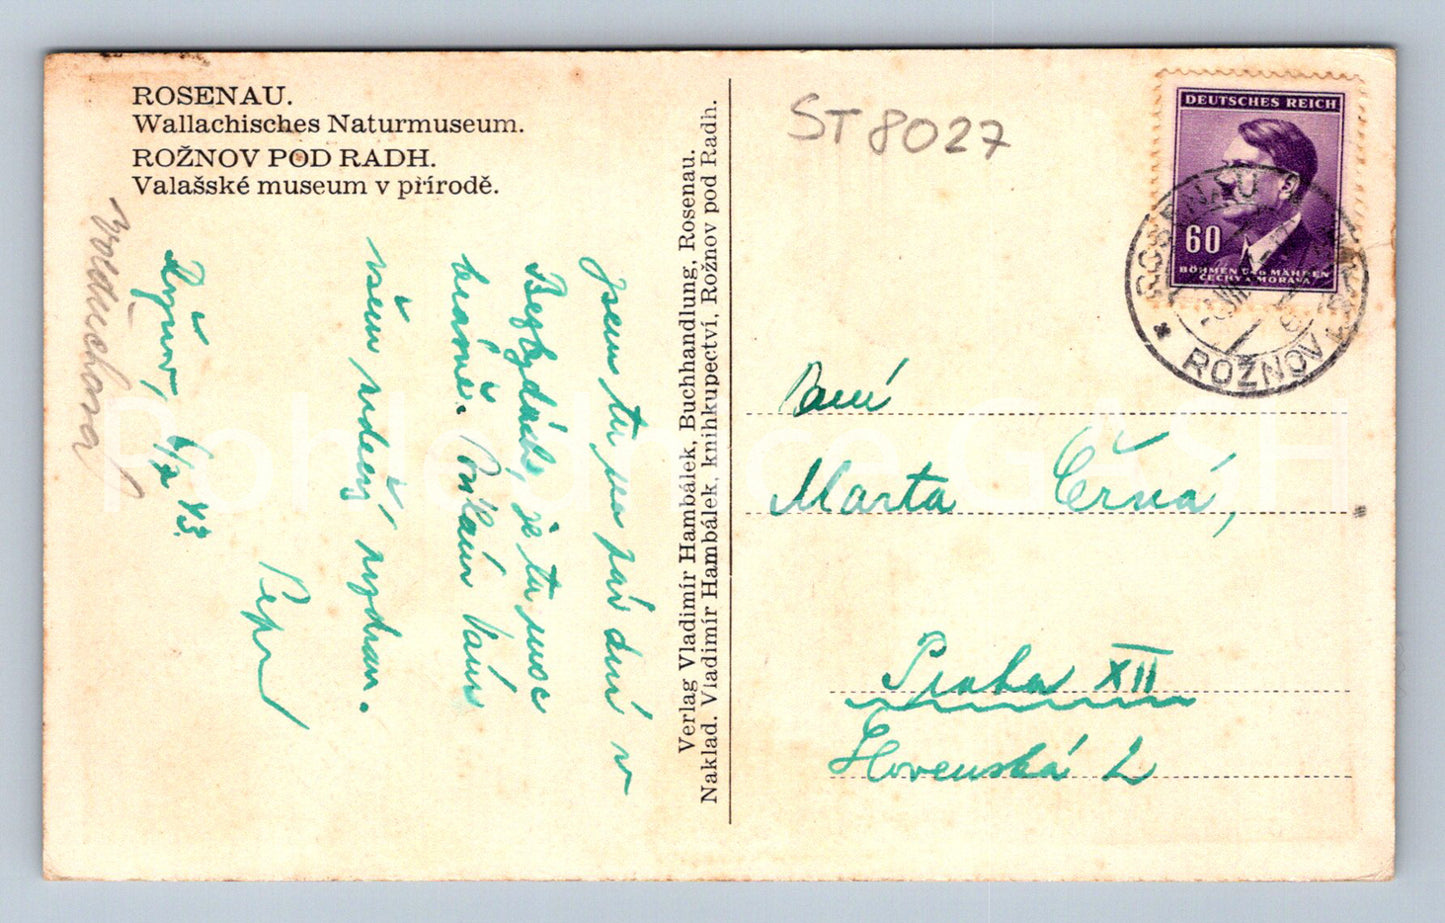 ROSENAU.
Wallachisches Naturmuseum.
ROŽNOV POD RADH.
Valašské museum v přírodě.
ST 8027
DEUTSCHES REICH
60
BÖHMEN UND MÄHREN
ČECHY A MORAVA
ROSENAU
ROŽNOV
Verlag Vladimír Hambálek, Buchhandlung, Rosenau.
Naklad. Vladimír Hambálek, knihkupectví, Rožnov pod Radh.
jsem tu na pár dní v
Bezkydách, je tu moc
krásně. Posílám Vám
všem srdečný pozdrav.
Pepa
6/7 43.
Paní
Marta Černá,
Praha XII
Slovenská 2
Pohlednice GASH